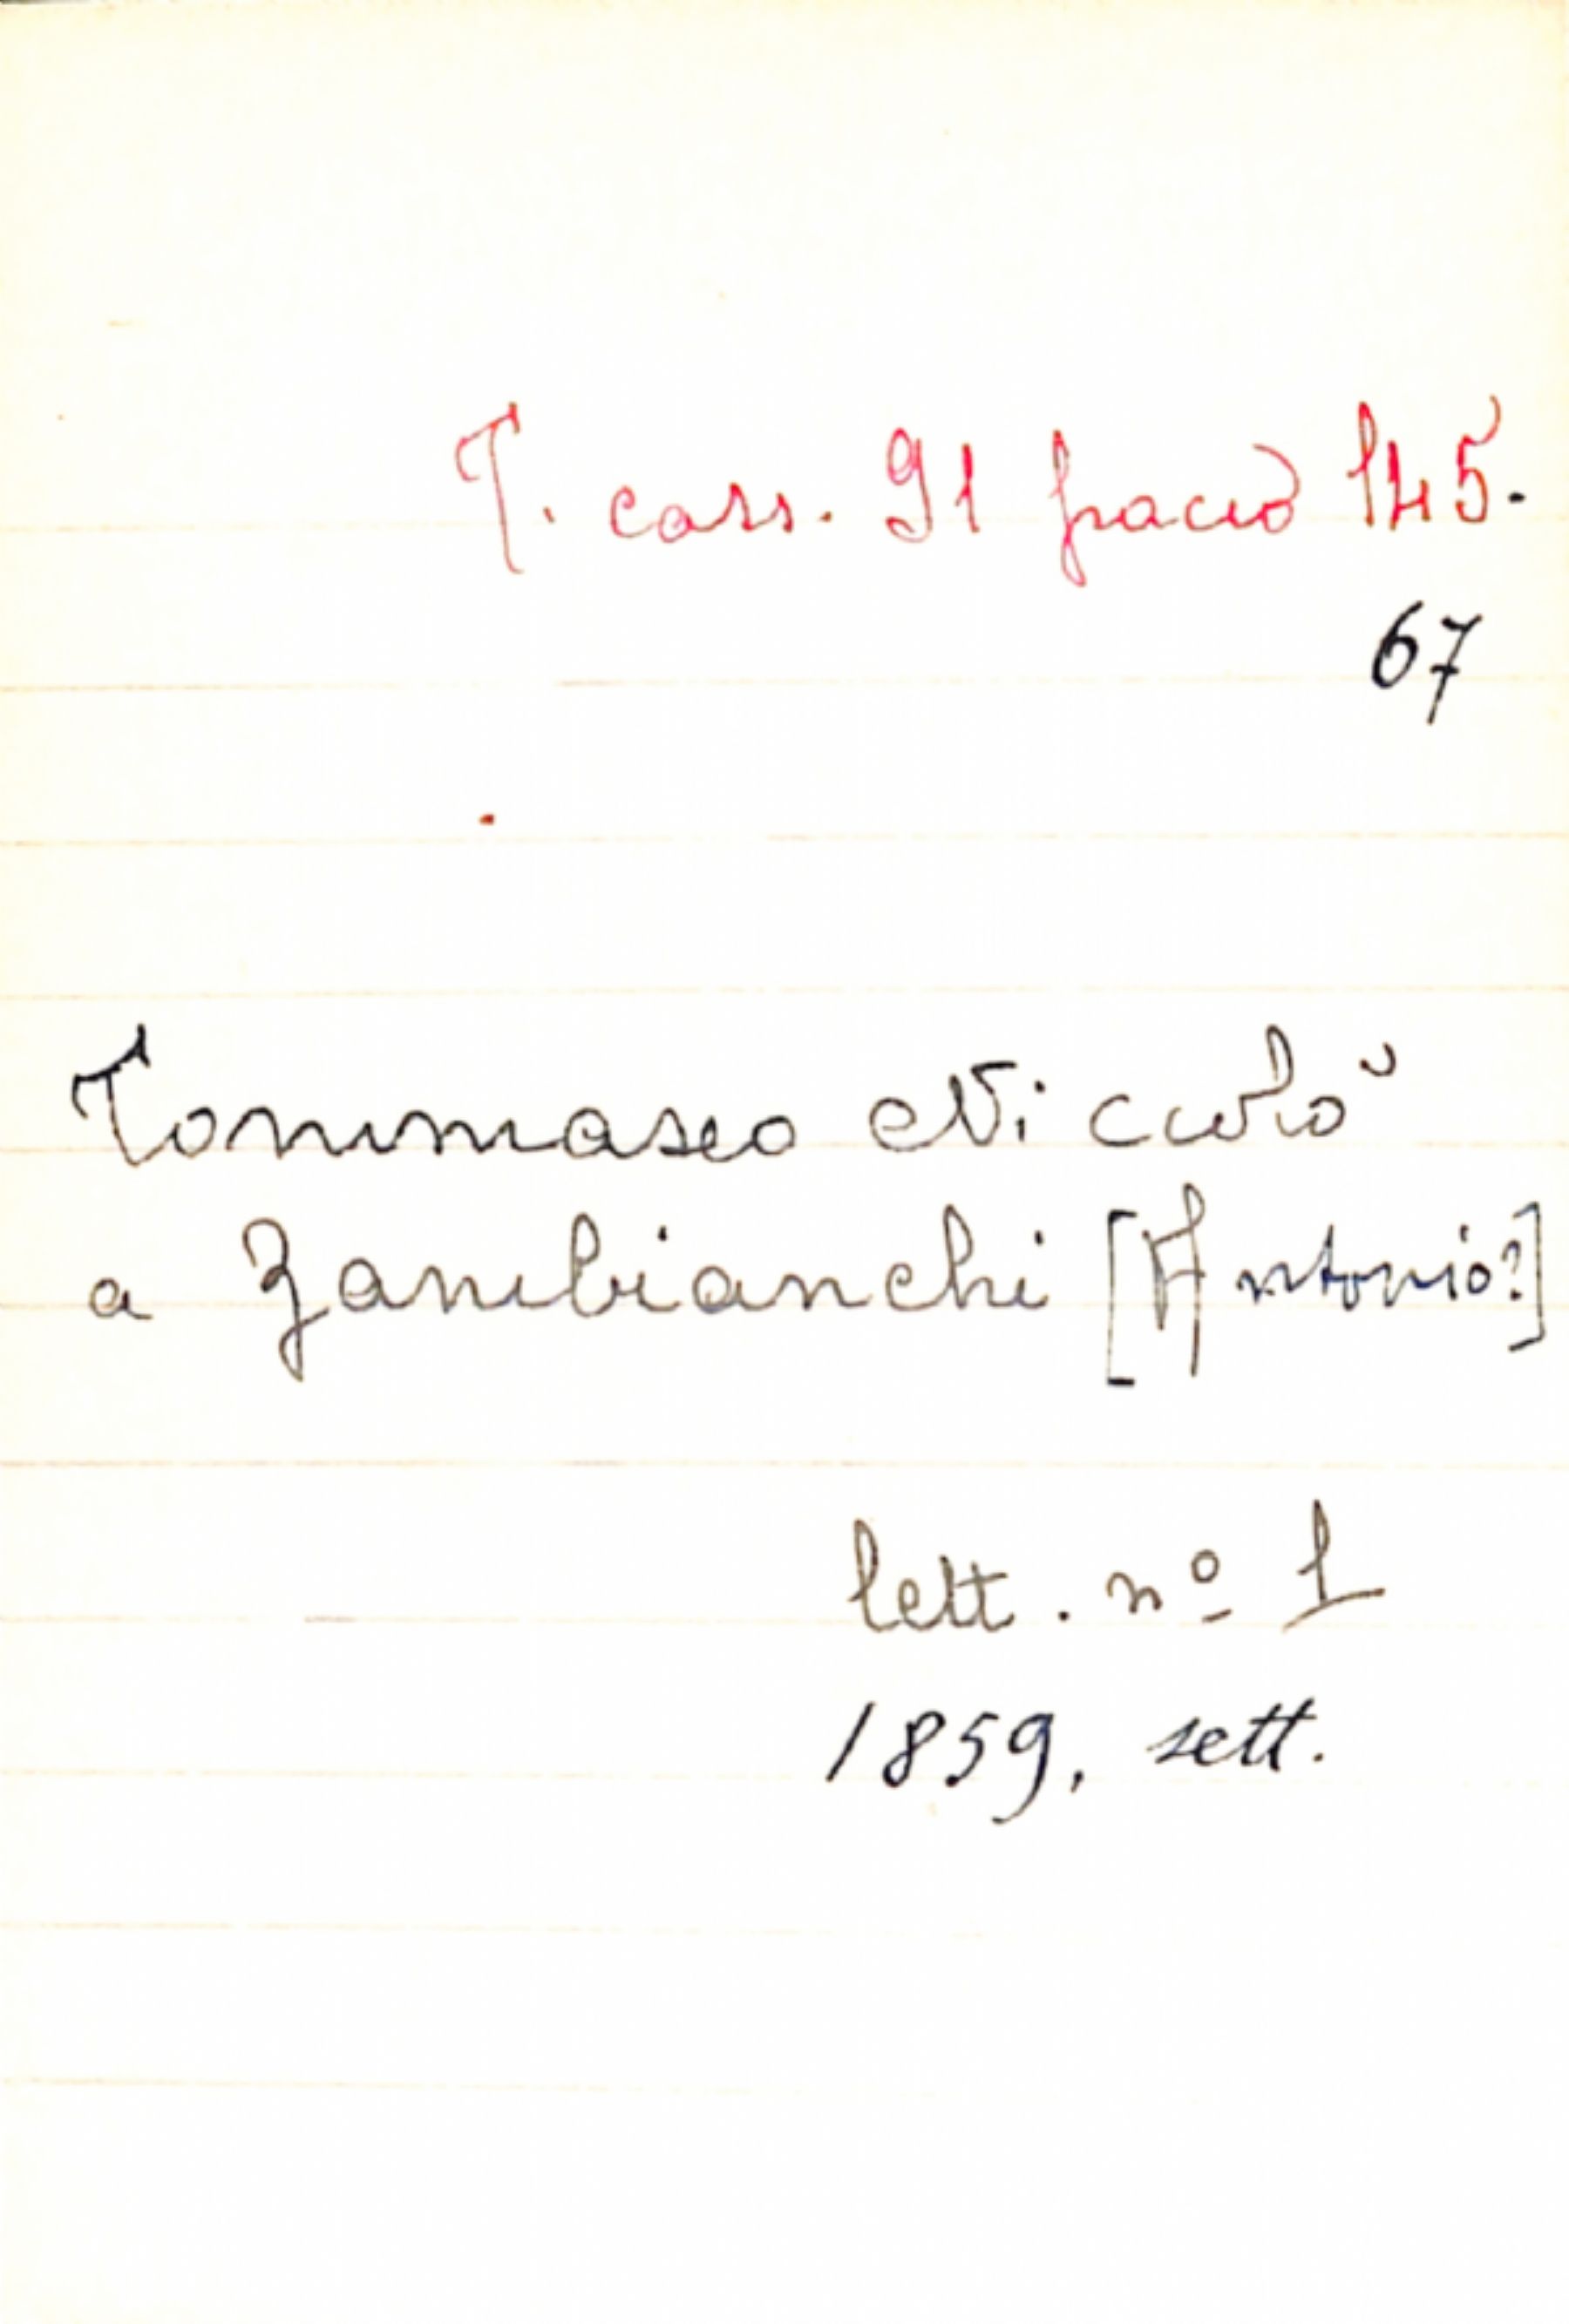 T. cass. 91 fascio 145.
67
Tommaseo Niccolò
a Zambianchi [Antonio?]
lett. nº 1
1859, sett.